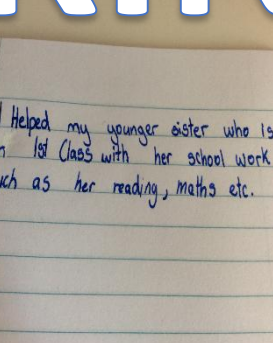 I Helped my younger sister who is
1st Class with her school work
as her reading, maths etc.